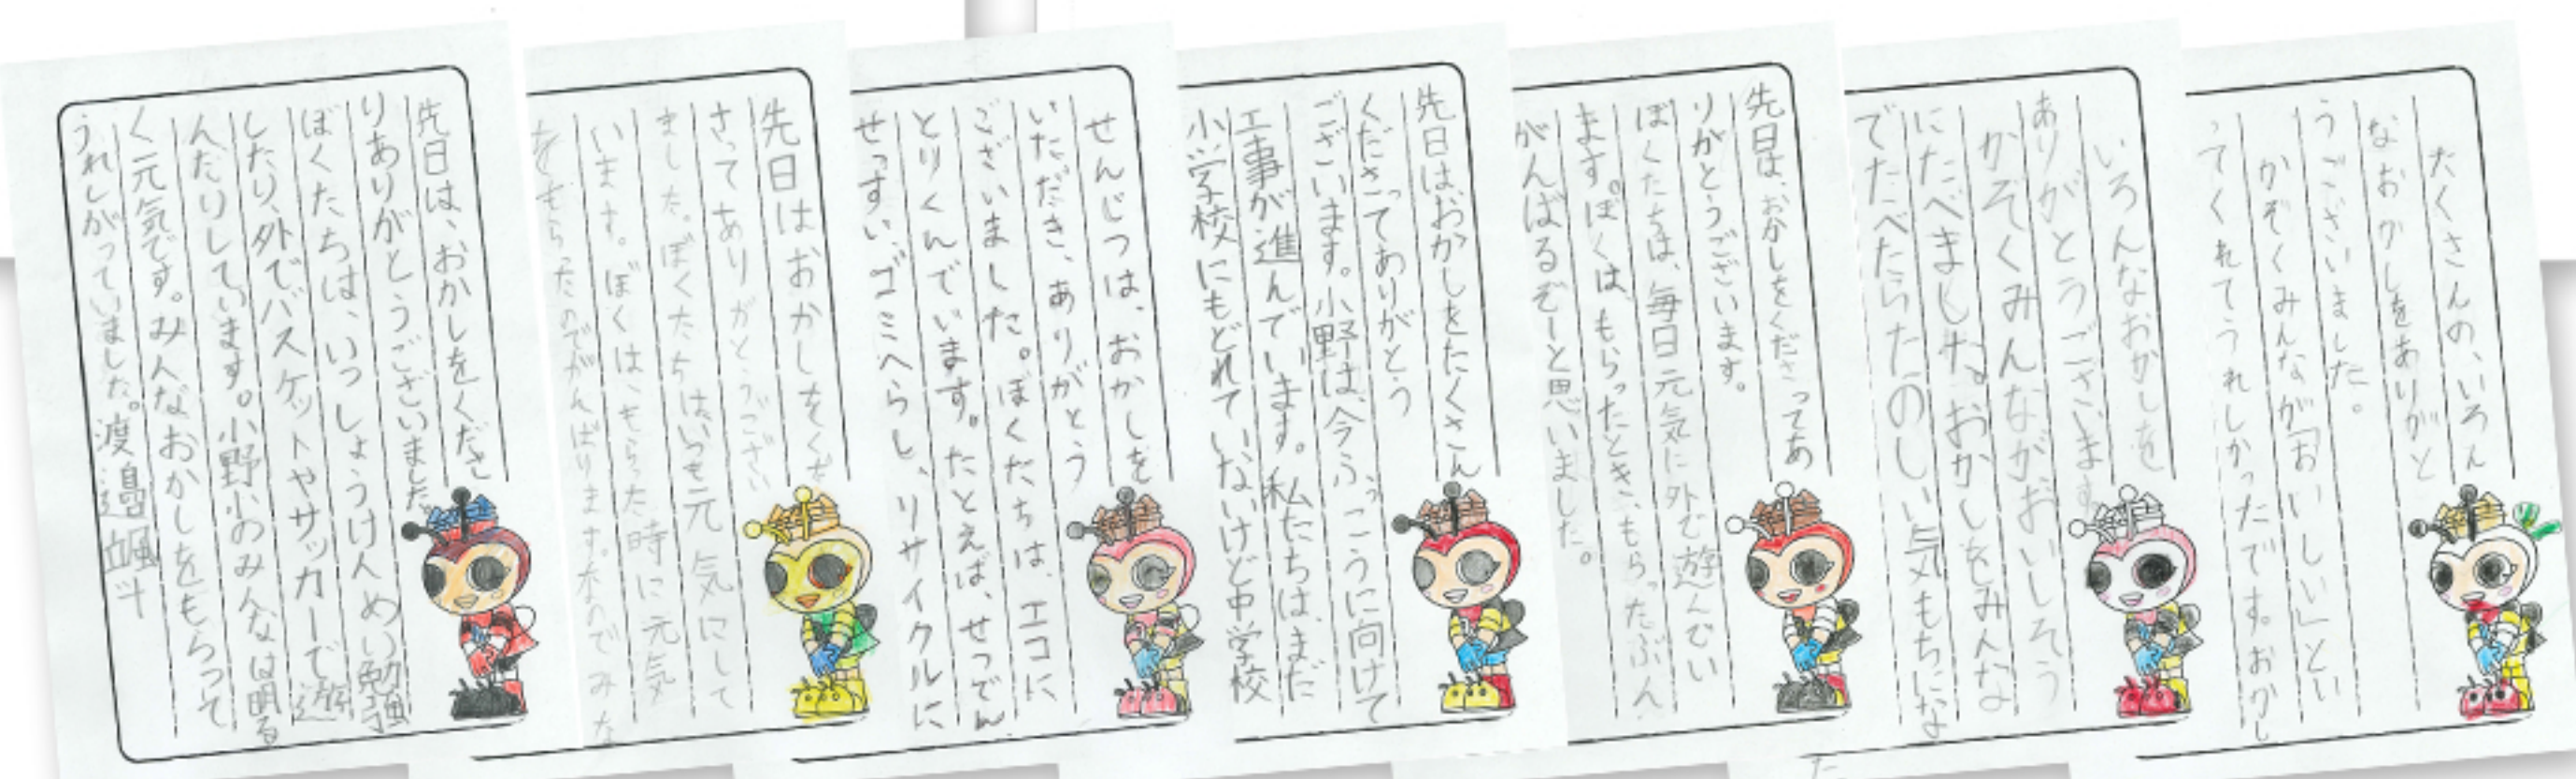 先日は、おかしをくださ
りありがとうございました。
ぼくたちは、いっしょうけんめい勉強
したり、外でバスケットやサッカーで遊
んだりしています。小野小のみんなは明る
く元気です。みんなおかしをもらって
うれしがっていました。渡邉颯斗
先日はおかしをくだ
さってありがとうござい
ました。ぼくたちはいつも元気にして
います。ぼくは、もらった時に元気
をもらったのでがんばります。本のでみな
せんじつは、おかしを
いただき、ありがとう
ございました。ぼくたちは、エコに
とりくんでいます。たとえば、せつでん、
せっすい、ゴミへらし、リサイクルに
先日は、おかしをたくさん
くださってありがとう
ございます。小野は、今ふっこうに向けて
工事が進んでいます。私たちは、まだ
小学校にもどれていないけど中学校
先日は、おかしをくださってあ
りがとうございます。
ぼくたちは、毎日元気に外で遊んでい
ます。ぼくは、もらったとき、もらったぶん、
がんばるぞーと思いました。
いろんなおかしを
ありがとうございます
かぞくみんながおいしそう
にたべました。おかしをみんな
でたべたらたのしい気もちにな
たくさんの、いろん
なおかしをありがと
うございました。
かぞくみんなが「おいしい」とい
ってくれてうれしかったです。おかし